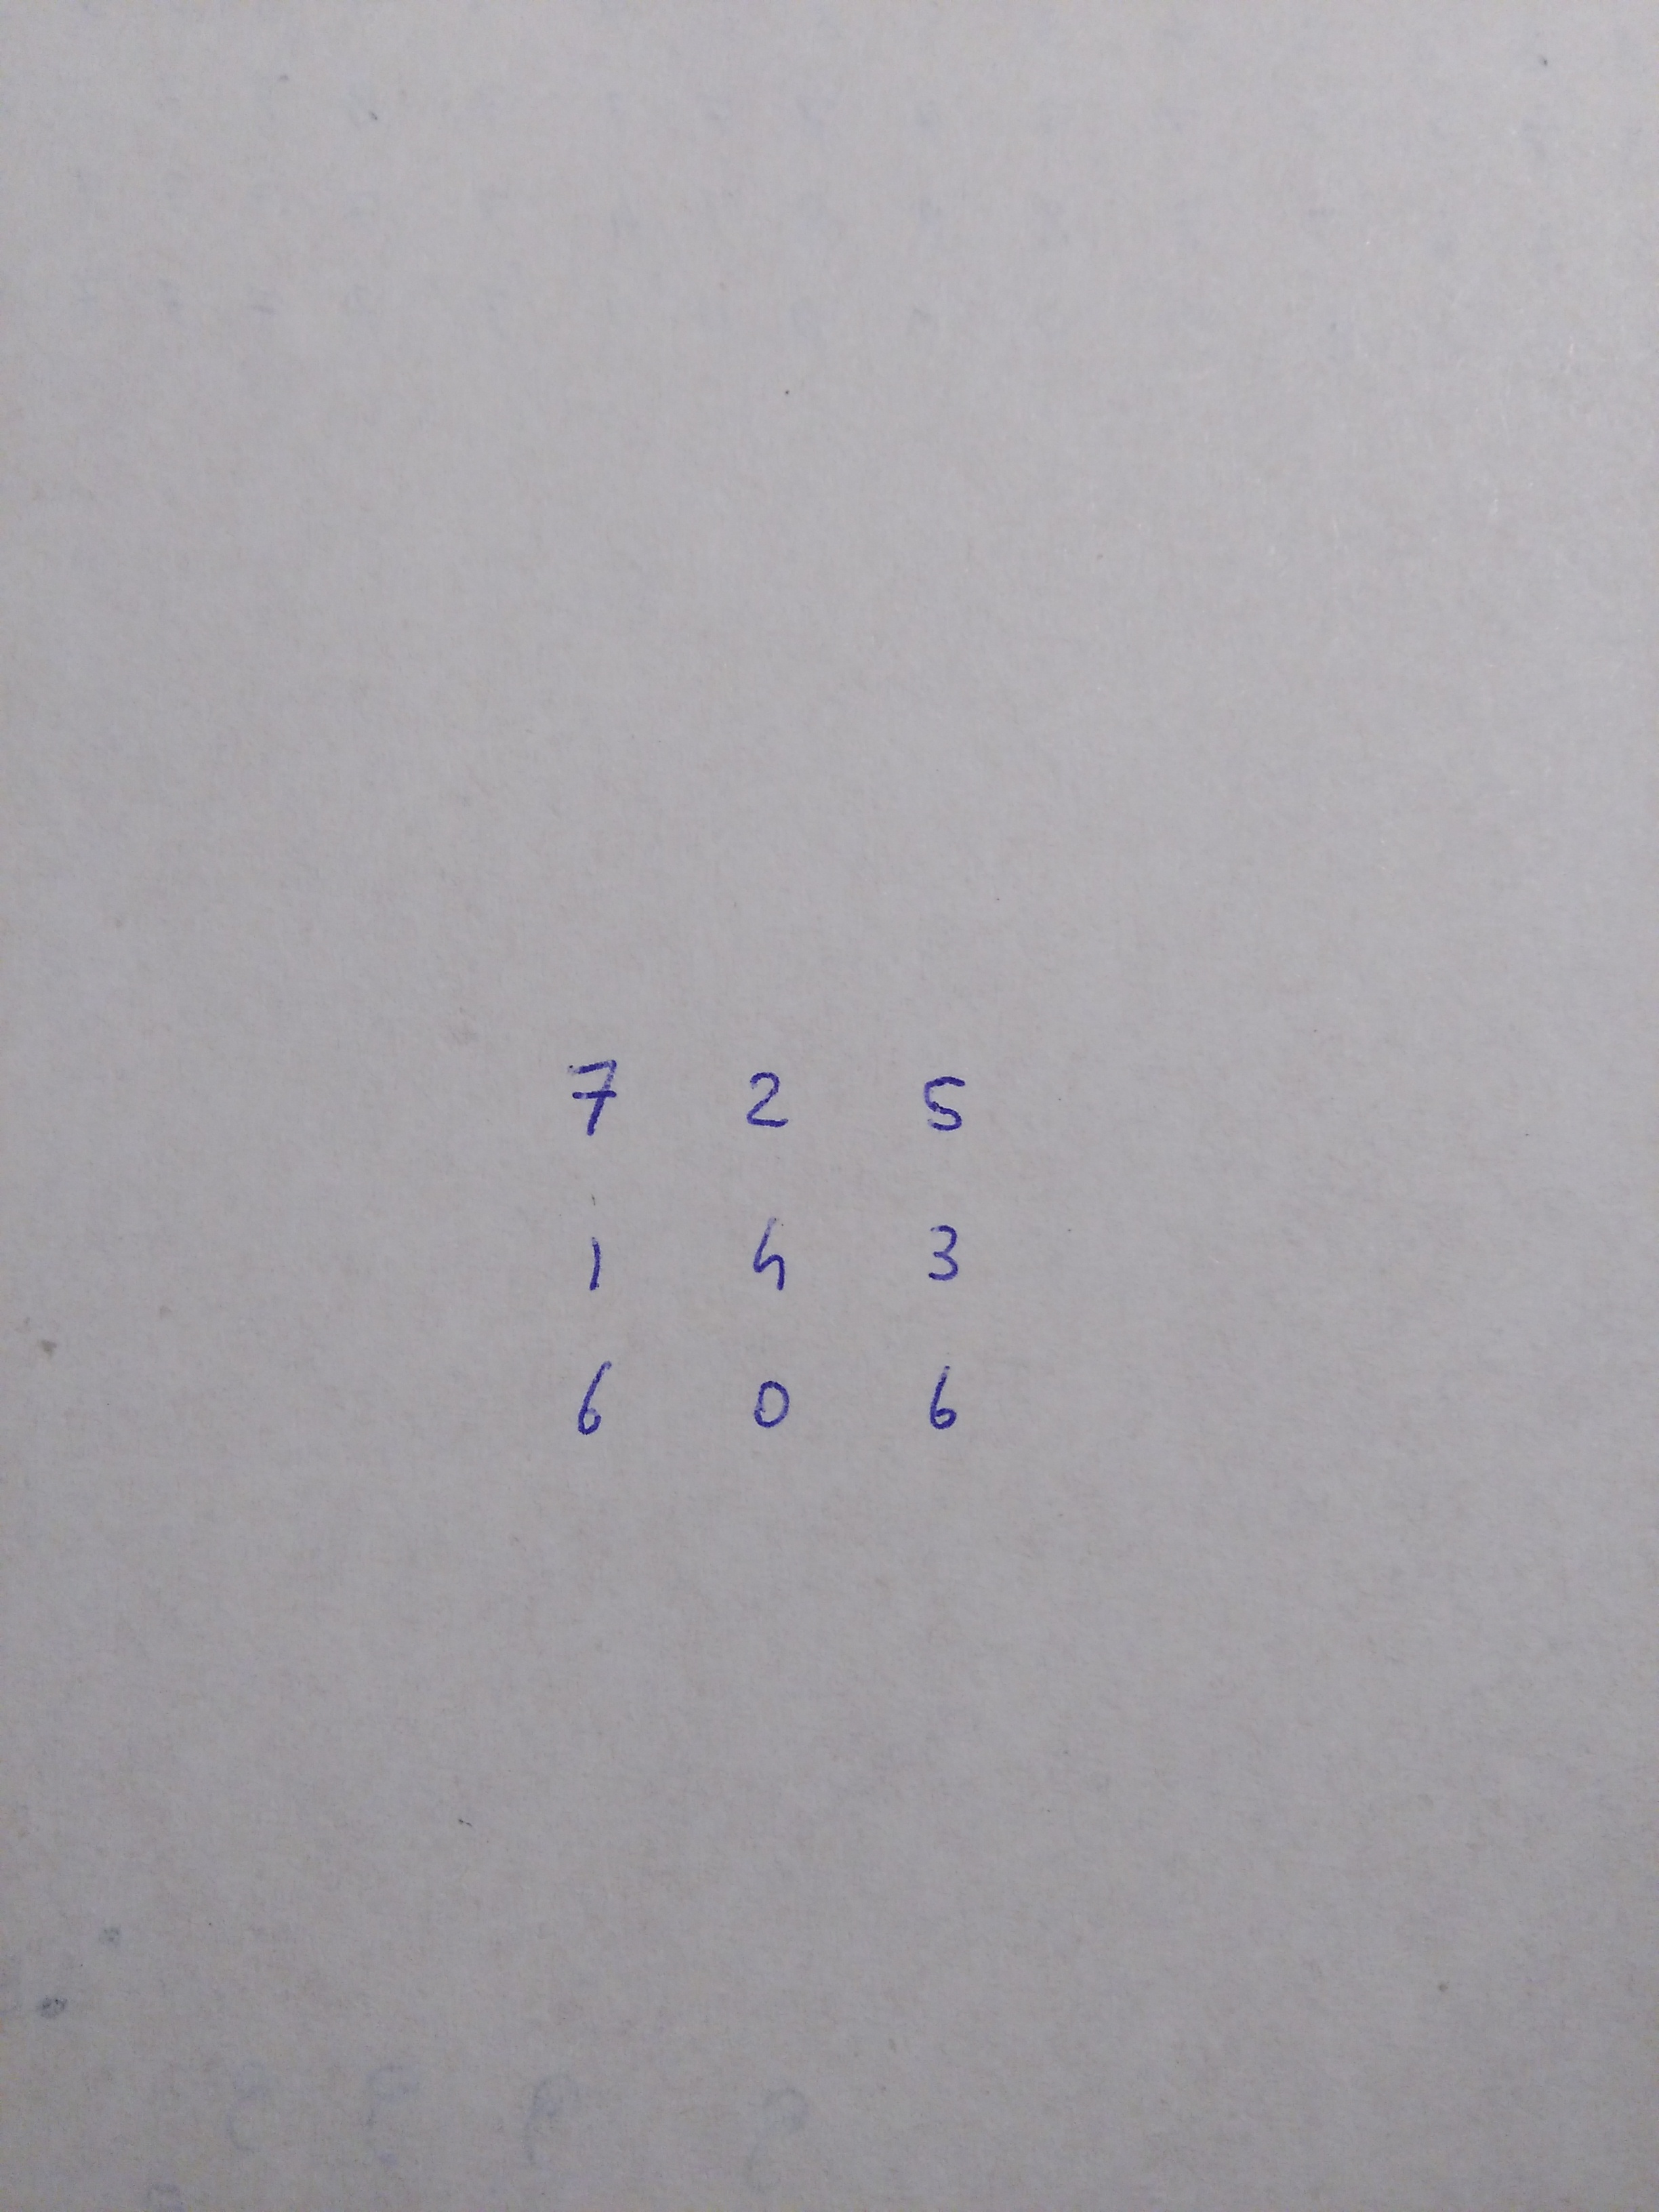 7 2 5
1 4 3
6 0 6